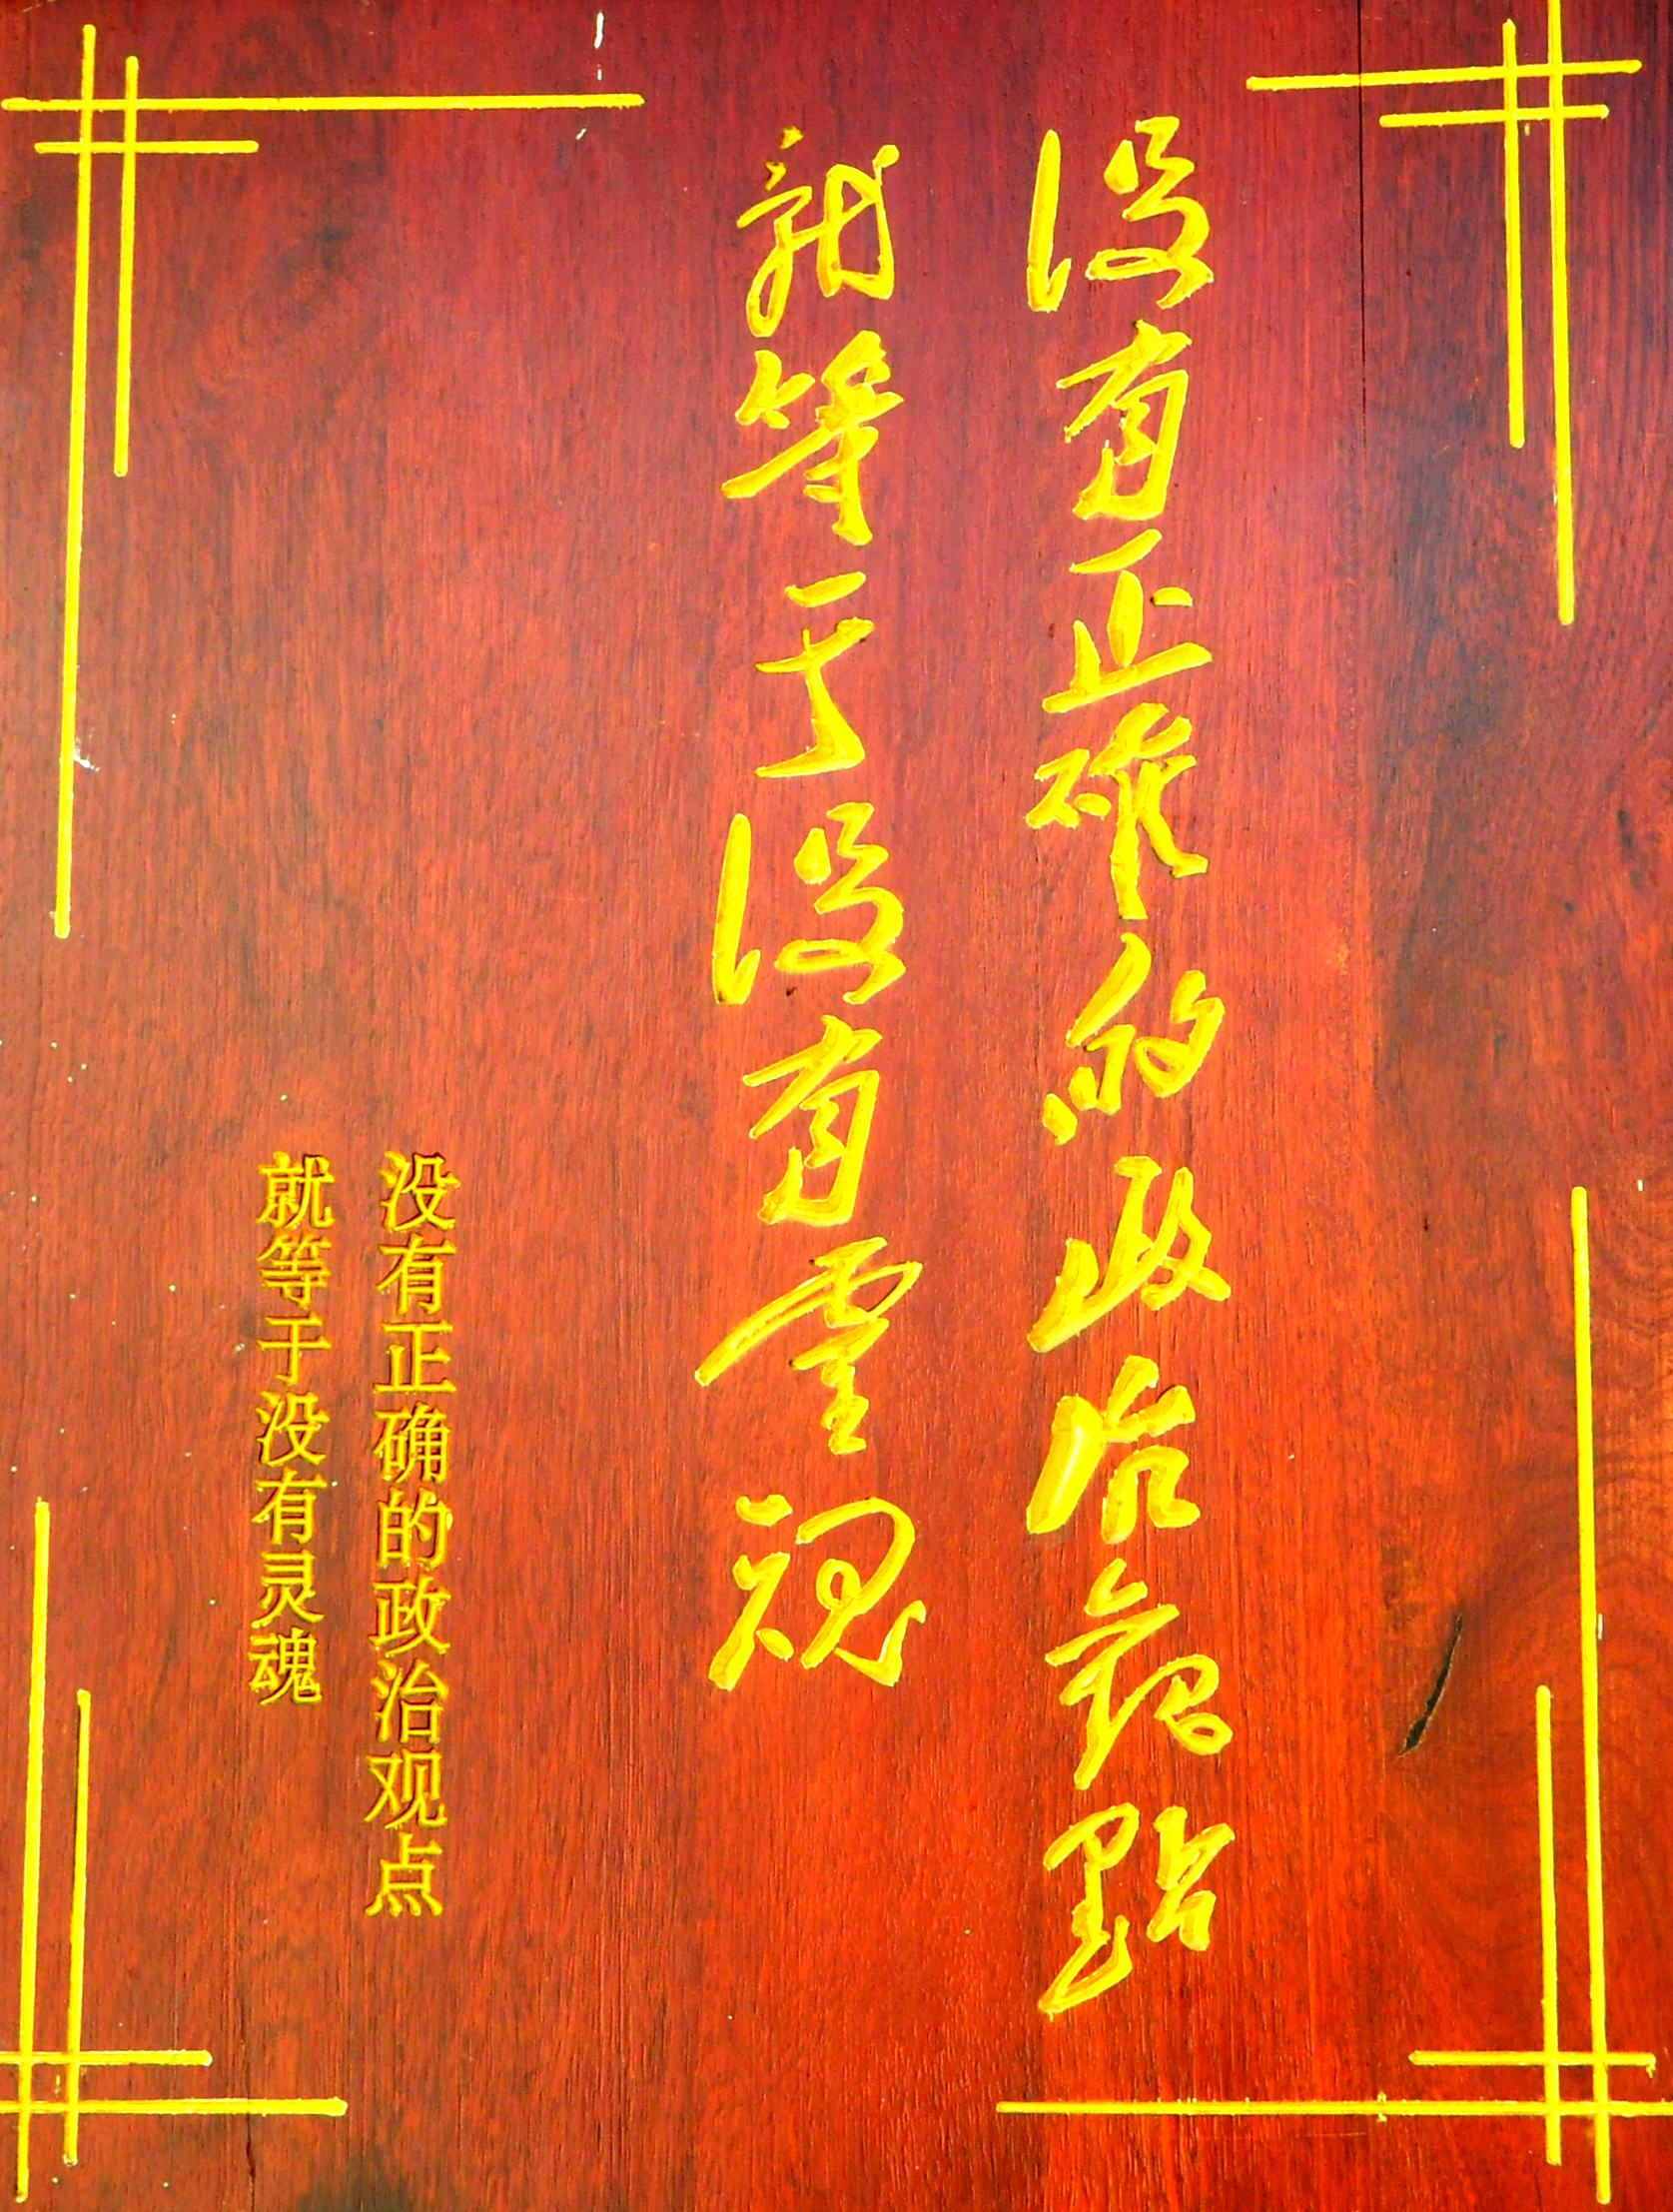 没有正確的政治觀點
就等于没有靈魂
没有正确的政治观点
就等于没有灵魂